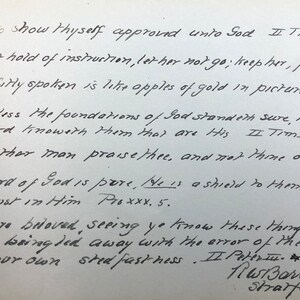 show thyself approved unto God II Tim
hold of instruction, let her not go; keep her,
fitly spoken is like apples of gold in pictur
less the foundations of God standeth sure,
knoweth them that are His II Tim
ther man praise thee, and not thine o
rd of God is pure, He is a shield to them
ust in Him Pro xxx. 5.
re beloved, seeing ye know these thing
being led away with the error of the
our own stedfastness. II Peter III.